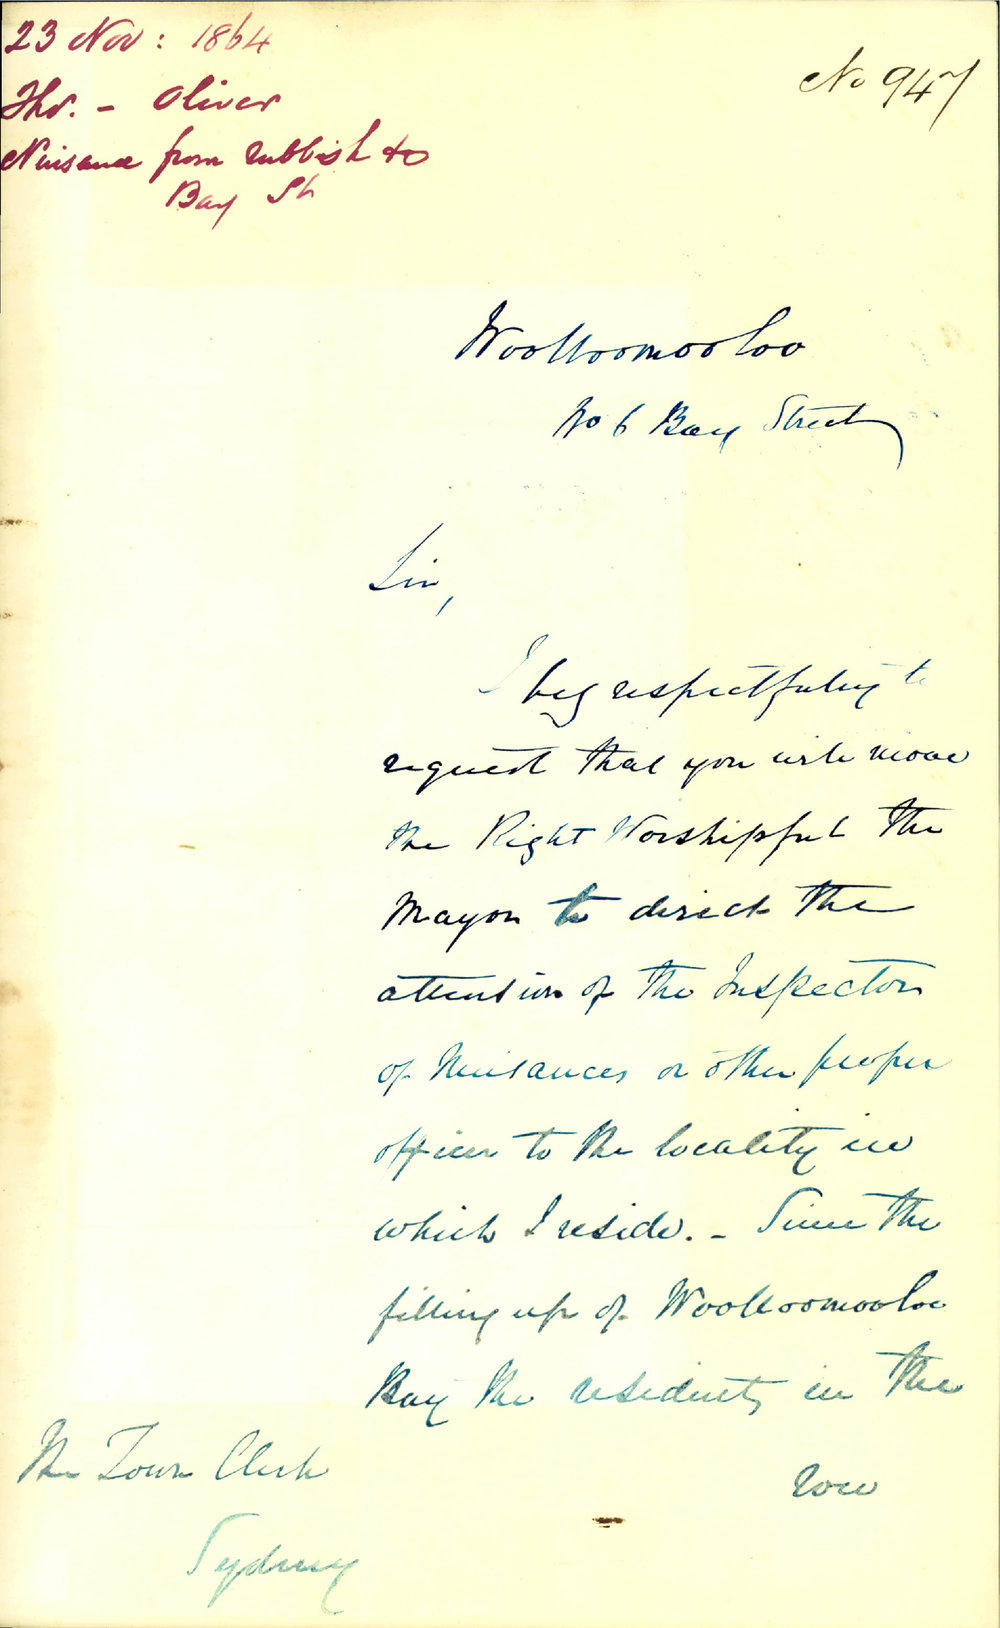 23 Nov: 1864
Thos. - Oliver
Nuisance from rubbish &c
Bay St
No 947
Woolloomooloo
No 6 Bay Street
Sir,
I beg respectfully to
request that you will move
the Right Worshipful the
Mayor to direct the
attention of the Inspector
of Nuisances or other proper
officer to the locality in
which I reside. - Since the
filling up of Woolloomooloo
Bay the residents in the
row
The Town Clerk
Sydney